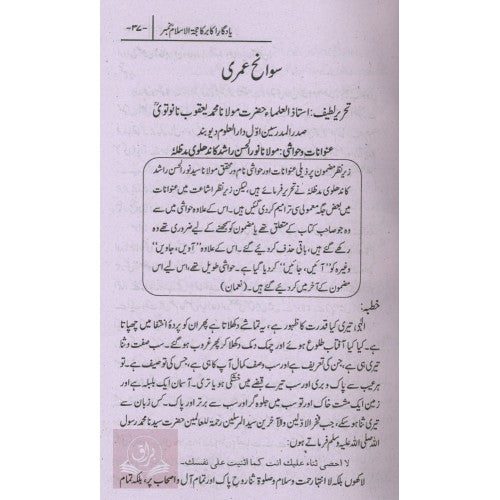 یادگار اکابر کا حجۃ الاسلام نمبر
-۳۷-
سوانح عمری
تحریر لطیف: استاذ العلماء حضرت مولانا محمد یعقوب نانوتویؒ
صدر المدرسین اوّل دارالعلوم دیوبند
عنوانات و حواشی: مولانا نور الحسن راشد کاندھلوی مدظلہٗ
زیر نظر مضمون پر ذیلی عنوانات اور حواشی نامور محقق مولانا سید نور الحسن راشد
کاندھلوی مدظلہٗ نے تحریر فرمائے ہیں، لیکن زیر نظر اشاعت میں عنوانات
میں بعض جگہ معمولی سی ترامیم کر دی گئیں ہیں۔ اس کے علاوہ حواشی میں سے
وہ جو صاحب کتاب کے متعلق تھے یا مضمون کو سمجھنے کے لیے ضروری تھے وہ
رکھے گئے ہیں، باقی حذف کر دیئے گئے۔ اس کے علاوہ ”آویں، جاویں“
وغیرہ کو ”آئیں، جائیں“ کر دیا گیا ہے۔ حواشی طویل تھے، اس لیے اس
مضمون کے آخر میں کر دیئے گئے ہیں۔ (نعمان)
خطبہ:
الٰہی تیری کیا قدرت کا ظہور ہے، یہ تماشے دکھلاتا ہے پھر ان کو پردۂ اختفا میں چھپاتا
ہے۔ کیا کیا آفتاب طلوع ہوئے اور چمک دمک دکھلا کر پھر غروب ہو گئے۔ سب صفت و ثنا
تیری ہی ہے، جن کی تعریف ہے اور سب وصف کمال آپ کا ہی ہے، جس کی توصیف ہے۔ تو
ہر عیب سے پاک و بری اور سب تیرے قبضے میں خشکی ہو یا تری۔ آسمان ایک بلبلہ ہے اور
زمین ایک مشت خاک اور تو سب میں جلوہ گر اور سب سے برتر اور پاک۔ کس زبان سے
تیری ثنا ہو سکے، جب فخر الاوّلین والآخرین سید المرسلین رحمۃ للعالمین حضرت سیدنا محمد رسول
اللہ صلی اللہ علیہ وسلم فرماتے ہوں:
لا احصی ثناء علیك انت كما اثنیت علی نفسك۔
لاکھوں بلکہ لا انتہا رحمت و سلام و صلوٰۃ نثار روح پاک اور تمام آل و اصحاب پر، بلکہ تمام